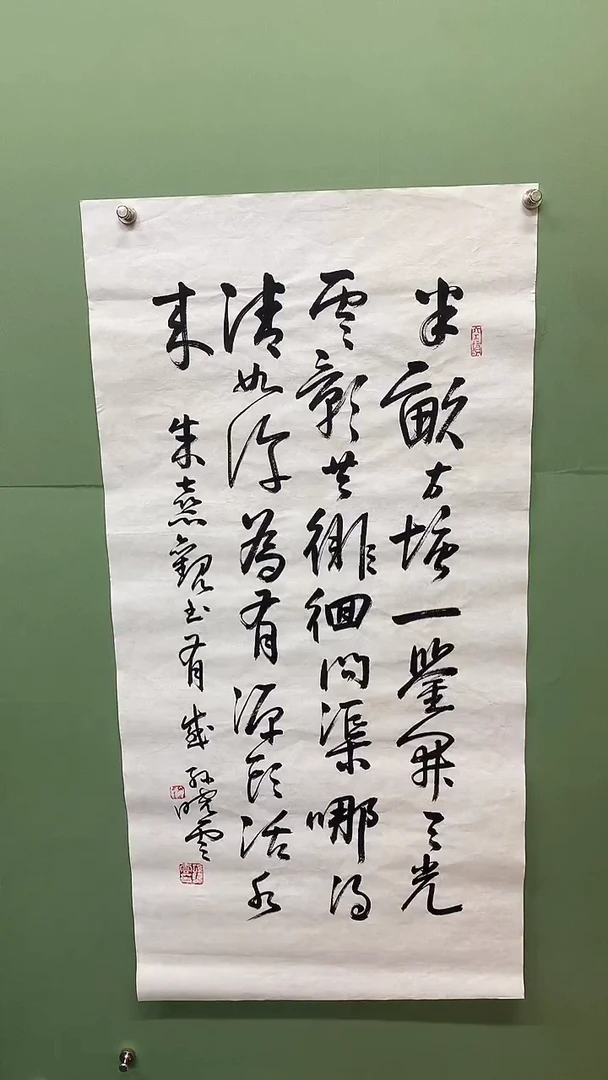 半畝方塘一鑒開天光
雲影共徘徊問渠哪得
清如許為有源頭活水
来 朱熹觀书有感 孫曉雲